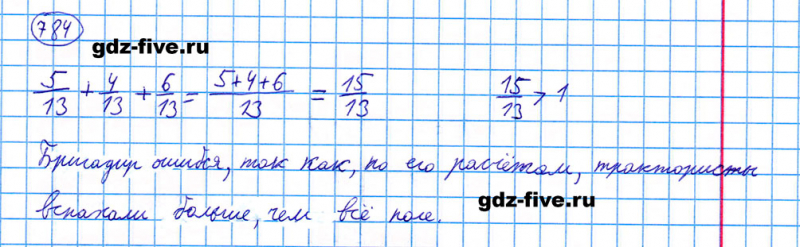 784
gdz-five.ru
5/13 + 4/13 + 6/13 = (5+4+6)/13 = 15/13    15/13 > 1
Бригадир ошибся, так как, по его расчётам, трактористы
вспахали больше, чем всё поле.
gdz-five.ru